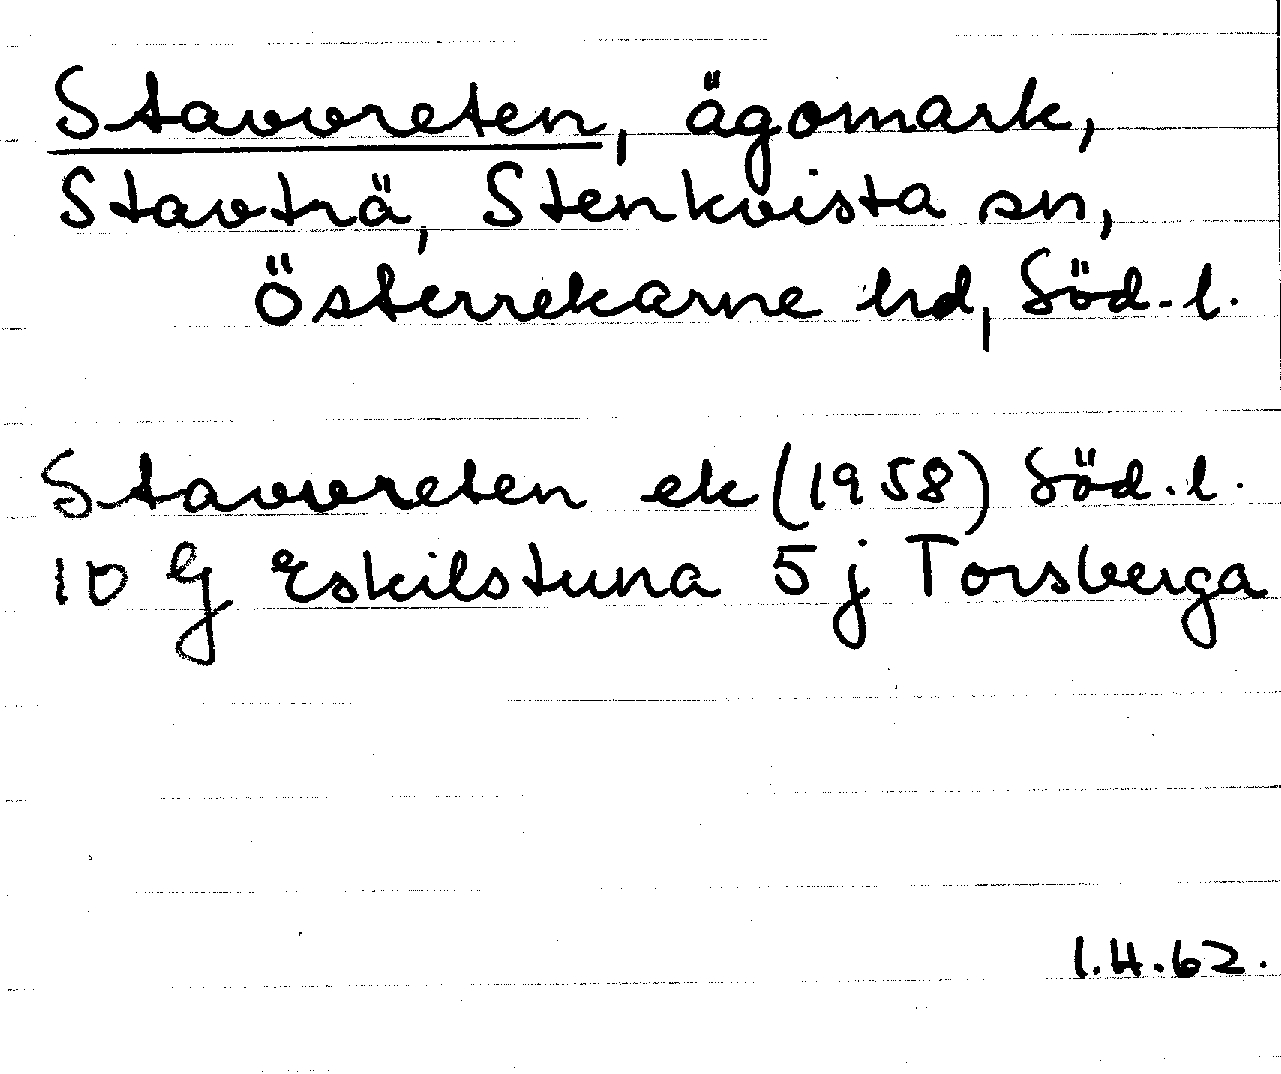 Stavvreten, ägomark,
Stavträ, Stenkvista sn,
Österrekarne hd, Söd. l.
Stavvreten ek (1958) Söd. l.
10 G Eskilstuna 5 j Torsberga
I.H.62.